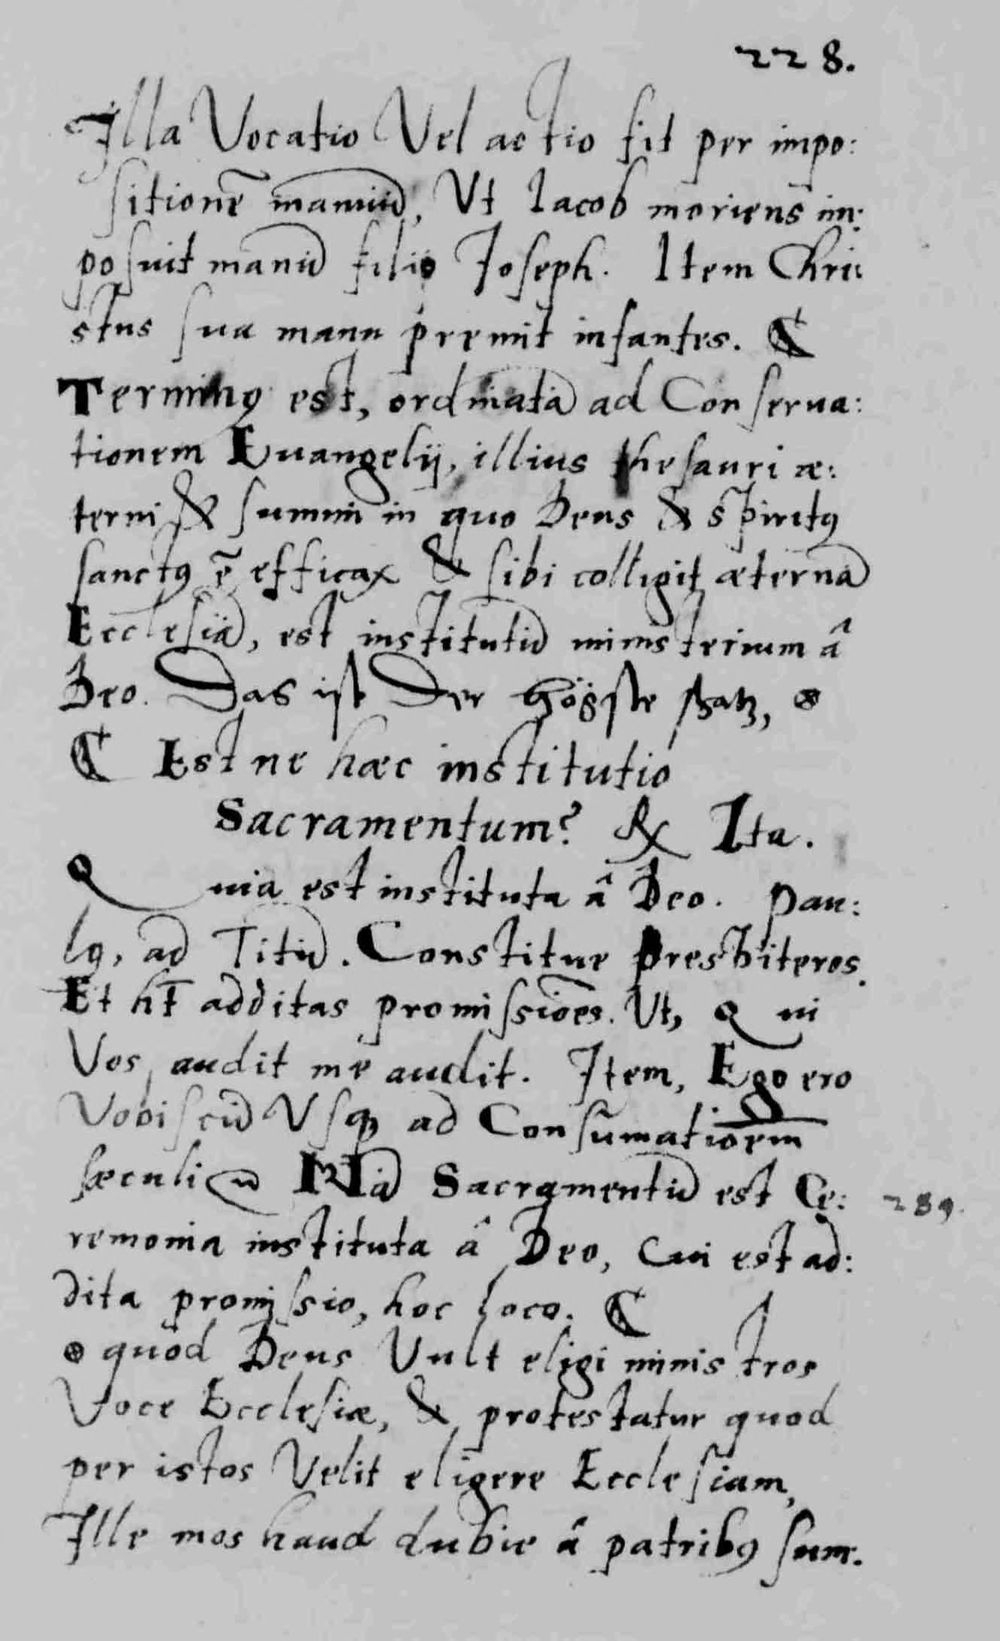 228.
Illa Vocatio Vel actio fit per impo:
sitionē manuū, Ut Iacob moriens im:
posuit manū filio Joseph. Item Chri:
stus sua manu premit infantes. ₵
Terminꝰ est, ordinatā ad Conserua:
tionem Euangelij, illius thesauri æ:
terni & summi in quo Deus & Spiritꝰ
sanctꝰ ē efficax & sibi colligit æternā
Ecclesiā, est institutū ministerium â
Deo. Das ist Der högste schatz,
₵ Estne hæc institutio
Sacramentum? ℞ Ita.
Quia est instituta â Deo. Pau:
lꝰ, ad Titū. Constitue Presbiteros.
Et ht̄ additas promissiões. Ut, Qui
Vos audit me audit. Item, Ego ero
Vobiscū Usqꝫ ad Consumatiōem
sæculi Nā Sacramentū est Ce:
289.
remonia instituta â Deo, Cui est ad:
dita promissio, hoc loco. ₵
quòd Deus Vult eligi ministros
Voce Ecclesiæ, & protestatur quod
per istos Velit eligere Ecclesiam,
Ille mos haud dubie â patribꝰ sum: